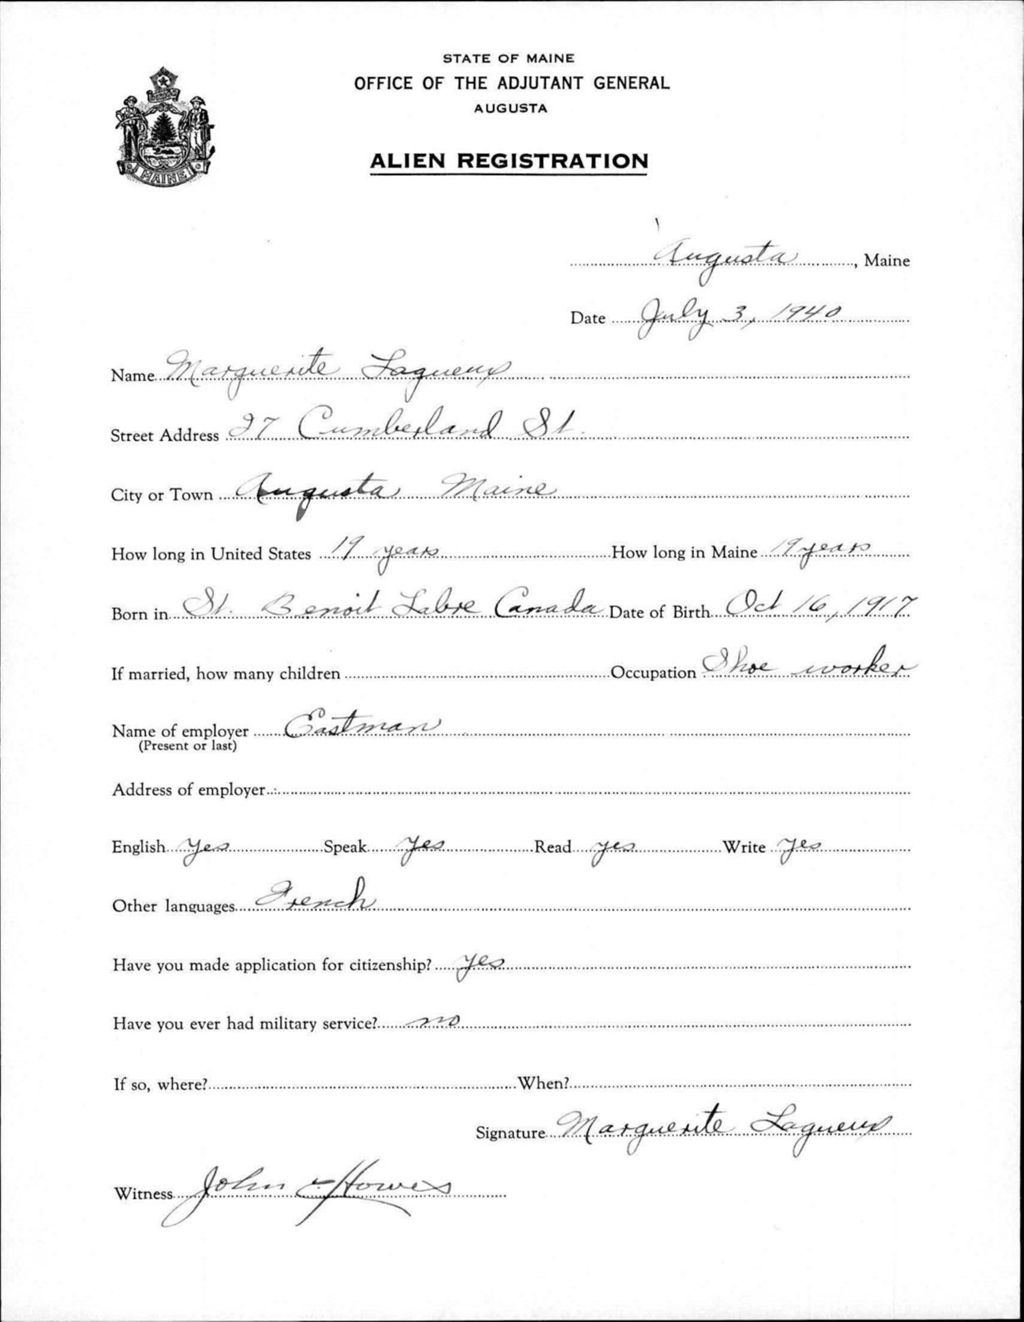 STATE OF MAINE
OFFICE OF THE ADJUTANT GENERAL
AUGUSTA
MAINE
ALIEN REGISTRATION
Augusta, Maine
Date July 3, 1940
Name Marguerite Laqueux
Street Address 27 Cumberland St.
City or Town Augusta Maine
How long in United States 19 years How long in Maine 19 years
Born in St. Benoit Labre Canada Date of Birth Oct 16, 1917
If married, how many children Occupation Shoe worker
Name of employer Eastman
(Present or last)
Address of employer
English Yes Speak Yes Read yes Write Yes
Other languages French
Have you made application for citizenship? yes
Have you ever had military service? no
If so, where? When?
Signature Marguerite Laqueux
Witness John Howes